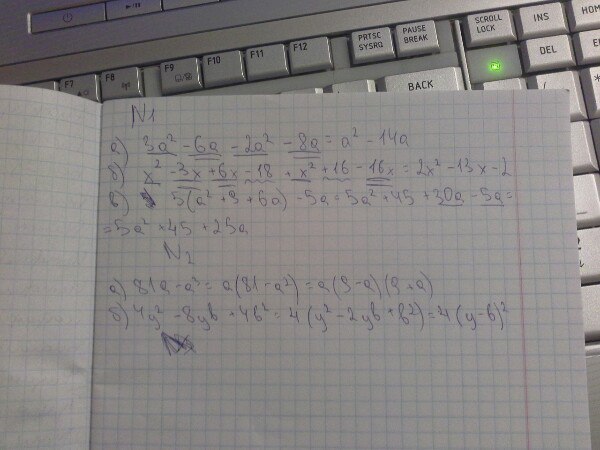 PRTSC
SYSRQ
PAUSE
BREAK
SCROLL
LOCK
INS
HOM
F7
F8
F9
F10
F11
F12
DEL
BACK
N1
а) 3a² - 6a - 2a² - 8a = a² - 14a
б) x² - 3x + 6x - 18 + x² + 16 - 16x = 2x² - 13x - 2
в) 5(a² + 9 + 6a) - 5a = 5a² + 45 + 30a - 5a =
= 5a² + 45 + 25a
N2
а) 81a - a³ = a(81 - a²) = a(9 - a)(9 + a)
б) 4y² - 8yb + 4b² = 4(y² - 2yb + b²) = 4(y - b)²